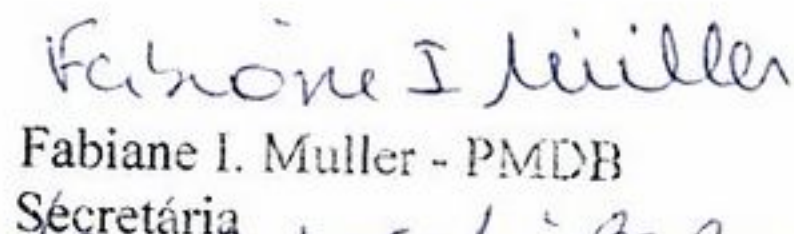 Fabiane I Müller
Fabiane I. Muller - PMDB
Secretária